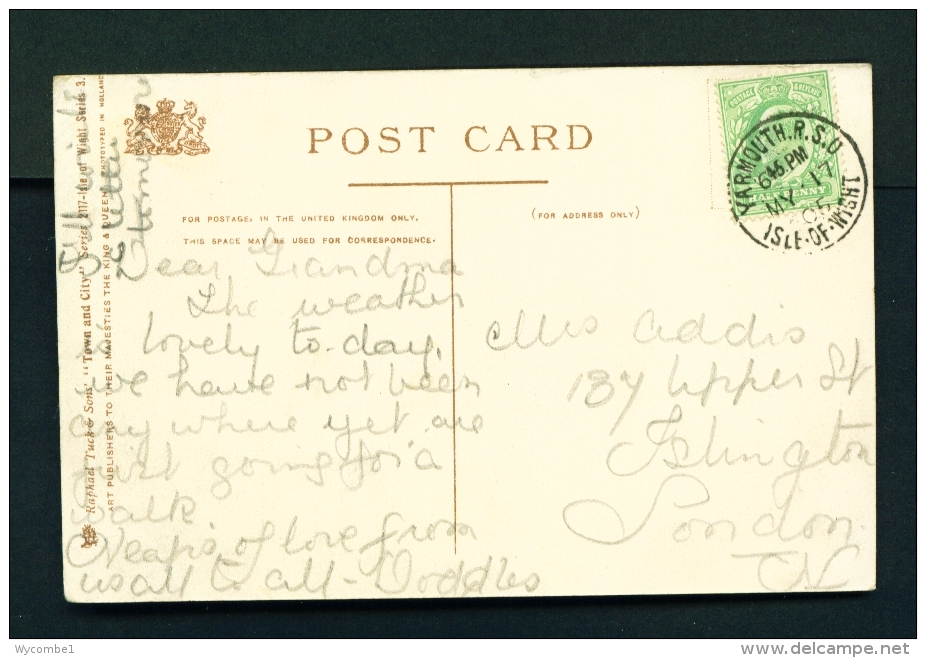 POST CARD
FOR POSTAGE, IN THE UNITED KINGDOM ONLY.
THIS SPACE MAY BE USED FOR CORRESPONDENCE.
(FOR ADDRESS ONLY)
POSTAGE & REVENUE
HALF PENNY
YARMOUTH.R.S.O
6 45 PM
MY 11
ISLE·OF·WIGHT
Raphael Tuck & Sons' "Town and City" Series 2117-Isle of Wight Series 3.
ART PUBLISHERS TO THEIR MAJESTIES THE KING & QUEEN. PHOTOTYPED IN HOLLAND
Will write
a letter
Dear Grandma
The weather
is lovely to-day,
we have not been
any where yet are
just going for a
walk
Heaps of love from
us all to all - Doddles
Mrs Addis
137 Upper St
Islington
London
N
Wycombe1
delcampe.net